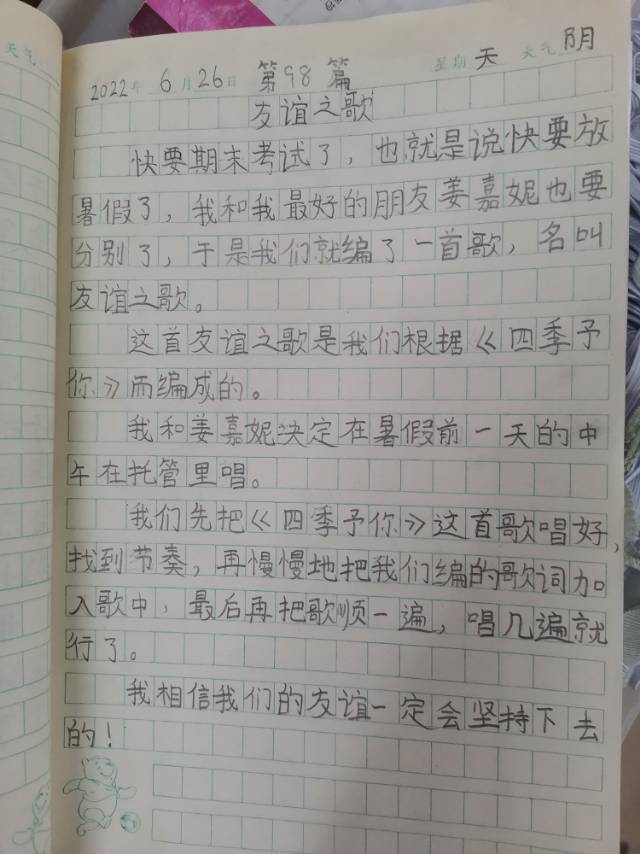 天气
2022年 6月26日 第98篇 星期 天 天气 阴
友谊之歌
快要期末考试了，也就是说快要放
暑假了，我和我最好的朋友姜嘉妮也要
分别了，于是我们就编了一首歌，名叫
友谊之歌。
这首友谊之歌是我们根据《四季予
你》而编成的。
我和姜嘉妮决定在暑假前一天的中
午在托管里唱。
我们先把《四季予你》这首歌唱好，
找到节奏，再慢慢地把我们编的歌词加
入歌中，最后再把歌顺一遍，唱几遍就
行了。
我相信我们的友谊一定会坚持下去
的！